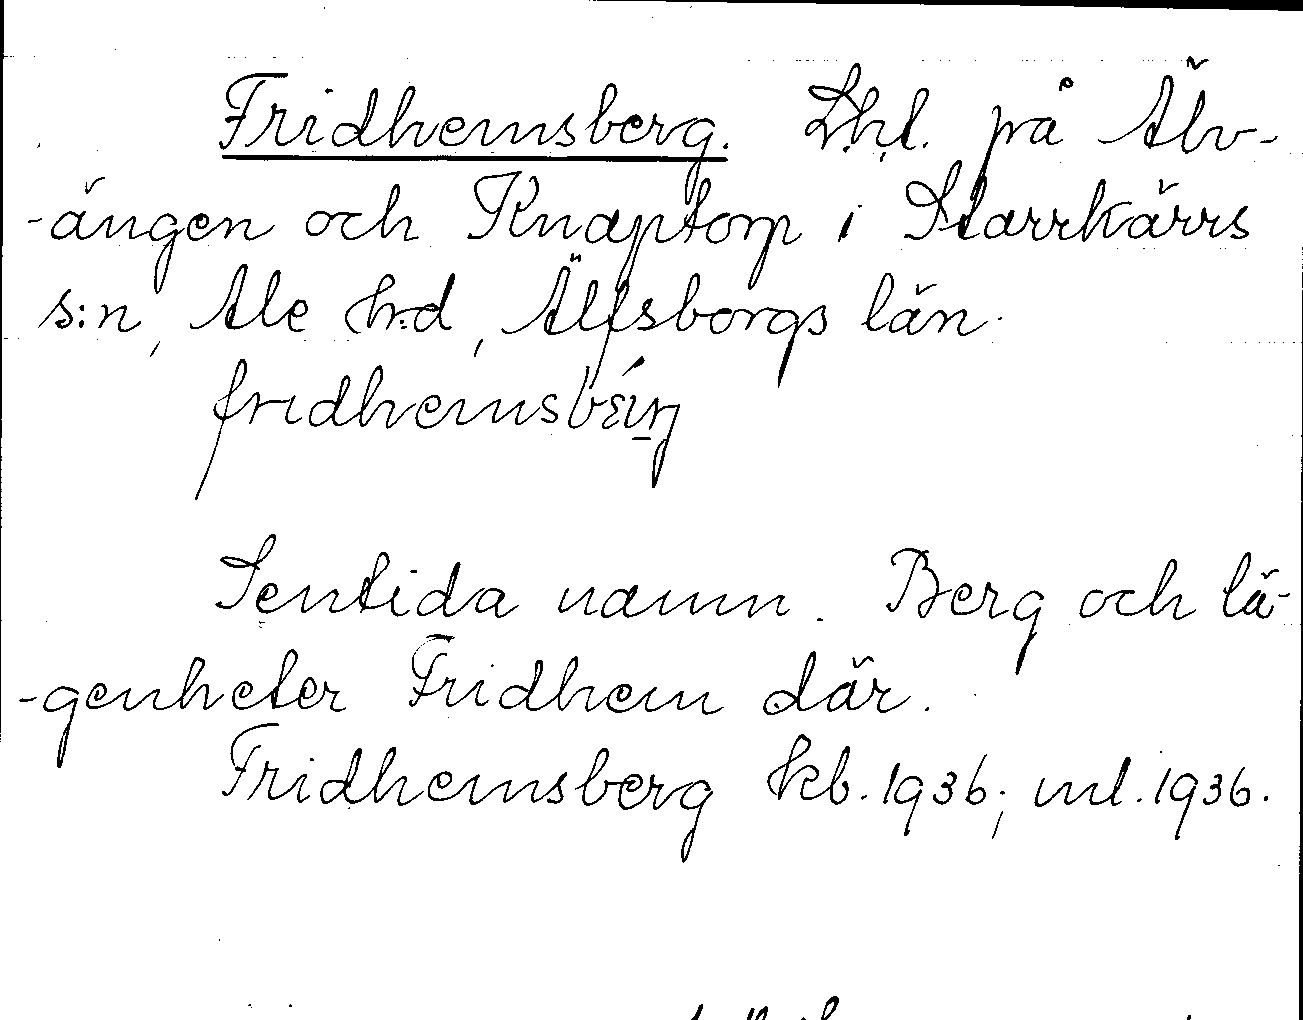 Fridhemsberg. Lhl. på Älv-
-ängen och Knaptorp i Starrkärrs
s:n, Ale h:d, Älfsborgs län.
fridhemsbérj
Sentida namn. Berg och lä-
-genheter Fridhem där.
Fridhemsberg kb. 1936; ml. 1936.